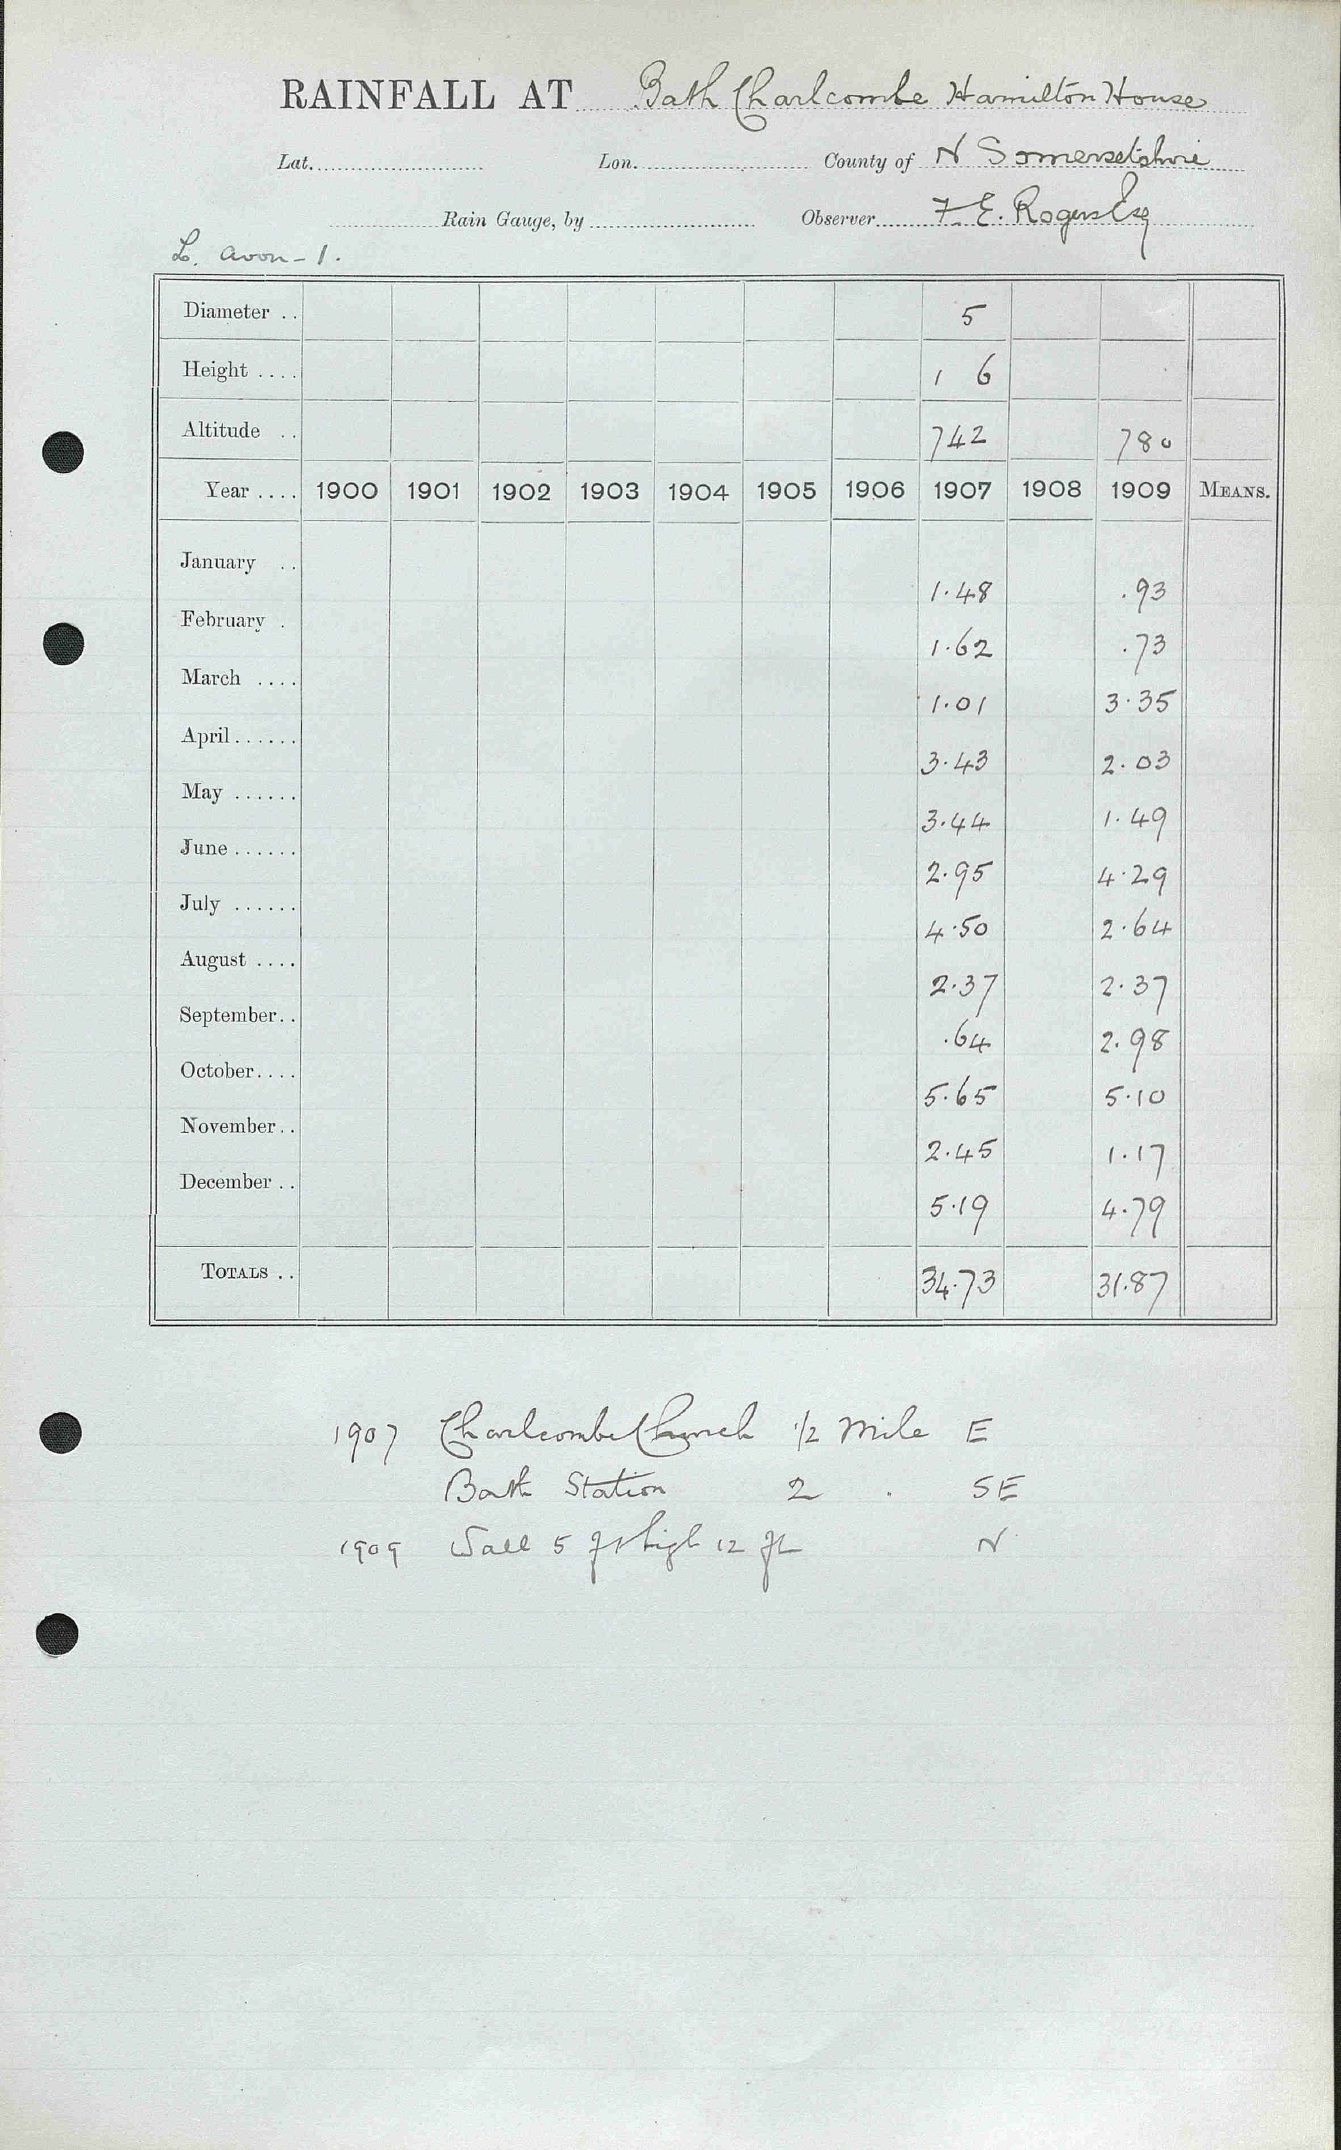 RAINFALL AT Bath Charlcombe Hamilton House
Lat. Lon. County of N Somersetshire
Rain Gauge, by Observer F. E. Rogers Esq
L. Avon - 1.
Diameter .. 5
Height .... 1 6
Altitude .. 742 780
Year .... 1900 1901 1902 1903 1904 1905 1906 1907 1908 1909 MEANS.
January .. 1.48 .93
February . 1.62 .73
March .... 1.01 3.35
April...... 3.43 2.03
May ...... 3.44 1.49
June ...... 2.95 4.29
July ...... 4.50 2.64
August .... 2.37 2.37
September.. .64 2.98
October.... 5.65 5.10
November.. 2.45 1.17
December .. 5.19 4.79
TOTALS .. 34.73 31.87
1907 Charlcombe Church 1/2 Mile E
Bath Station 2 . SE
1909 Wall 5 ft high 12 ft N